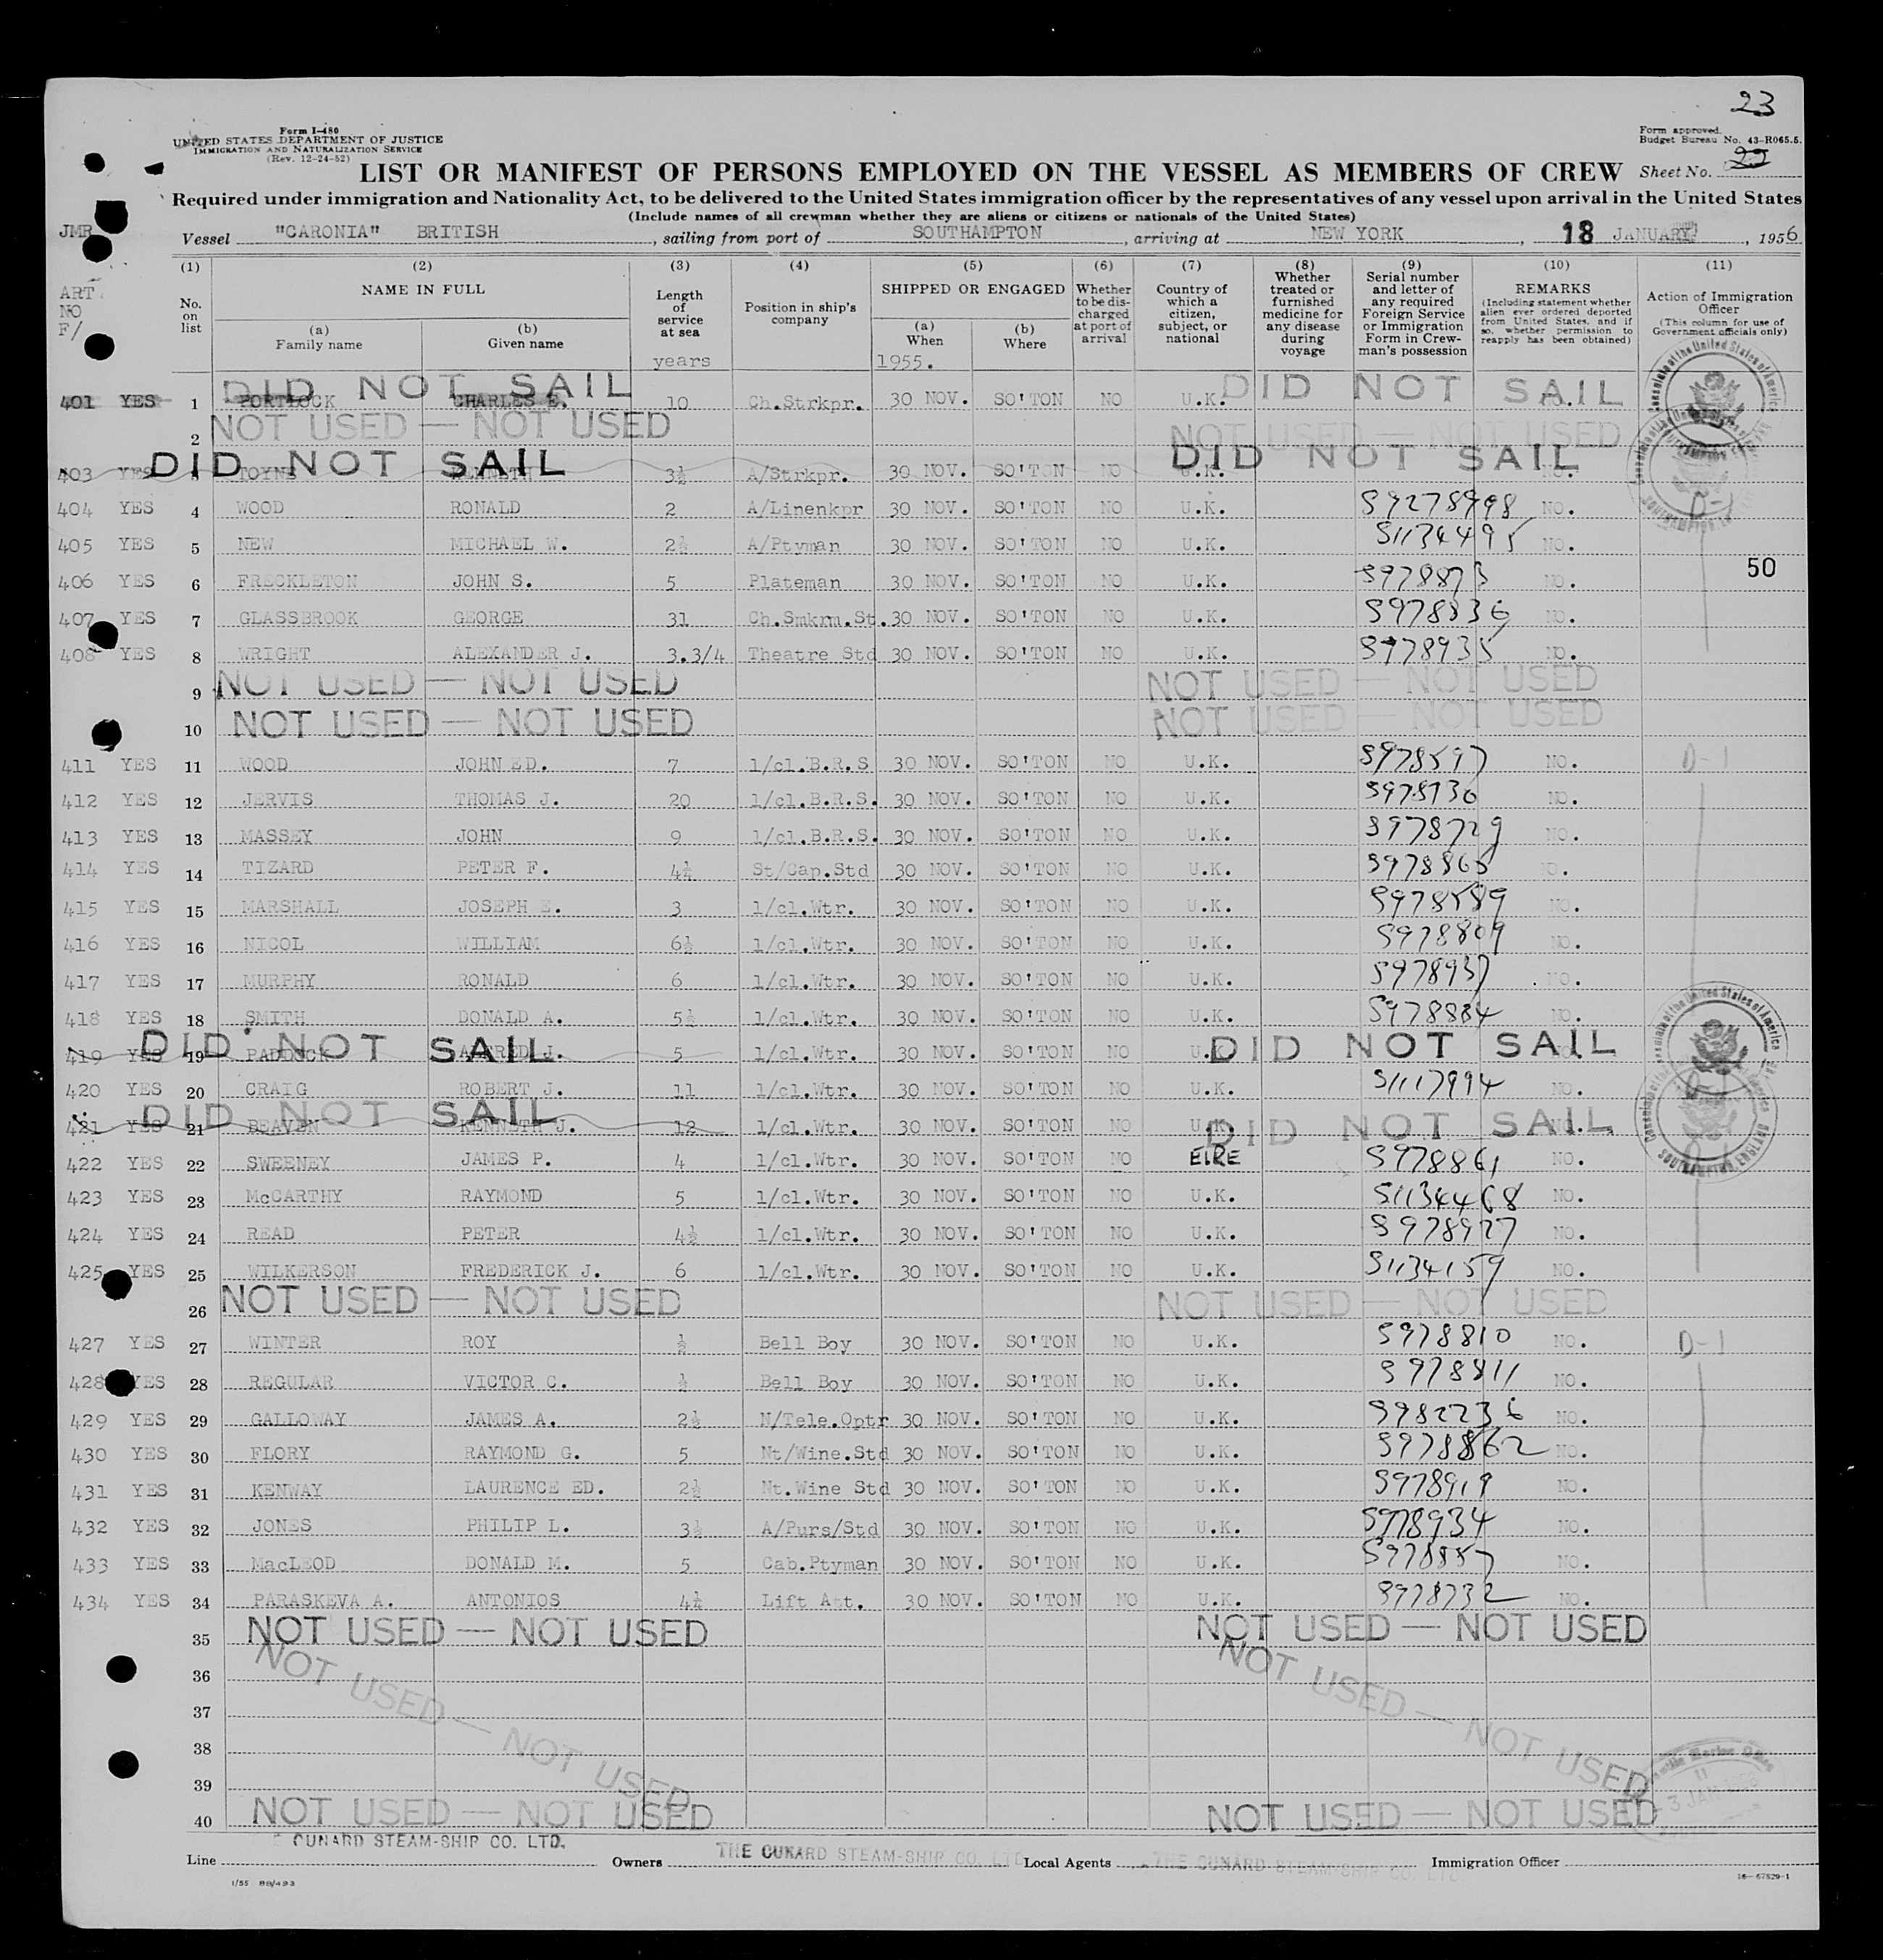 23
Form I-480
UNITED STATES DEPARTMENT OF JUSTICE
IMMIGRATION AND NATURALIZATION SERVICE
(Rev. 12-24-52)
Form approved.
Budget Bureau No. 43-R065.5.
LIST OR MANIFEST OF PERSONS EMPLOYED ON THE VESSEL AS MEMBERS OF CREW Sheet No. 22
Required under immigration and Nationality Act, to be delivered to the United States immigration officer by the representatives of any vessel upon arrival in the United States
(Include names of all crewman whether they are aliens or citizens or nationals of the United States)
JMR Vessel "CARONIA" BRITISH, sailing from port of SOUTHAMPTON, arriving at NEW YORK, 18 JANUARY, 1956
(1) (2) (3) (4) (5) (6) (7) (8) (9) (10) (11)
ART NO F/
No. on list
NAME IN FULL
(a) Family name
(b) Given name
Length of service at sea
years
Position in ship's company
SHIPPED OR ENGAGED
(a) When
1955.
(b) Where
Whether to be discharged at port of arrival
Country of which a citizen, subject, or national
Whether treated or furnished medicine for any disease during voyage
Serial number and letter of any required Foreign Service or Immigration Form in Crewman's possession
REMARKS
(Including statement whether alien ever ordered deported from United States, and if so, whether permission to reapply has been obtained)
Action of Immigration Officer
(This column for use of Government officials only)
DID NOT SAIL DID NOT SAIL
401 YES 1 PORTLOCK CHARLES E. 10 Ch.Strkpr. 30 NOV. SO'TON NO U.K.
2 NOT USED — NOT USED NOT USED — NOT USED
DID NOT SAIL DID NOT SAIL
403 YES TOYNE KENNETH 3½ A/Strkpr. 30 NOV. SO'TON NO U.K. NO.
404 YES 4 WOOD RONALD 2 A/Linenkpr 30 NOV. SO'TON NO U.K. NO.
405 YES 5 NEW MICHAEL W. 2½ A/Ptyman 30 NOV. SO'TON NO U.K. S1134495 NO.
50
406 YES 6 FRECKLETON JOHN S. 5 Plateman 30 NOV. SO'TON NO U.K. S978873 NO.
407 YES 7 GLASSBROOK GEORGE 31 Ch.Smkrm.St. 30 NOV. SO'TON NO U.K. S978836 NO.
408 YES 8 WRIGHT ALEXANDER J. 3.3/4 Theatre Std 30 NOV. SO'TON NO U.K. S978935 NO.
9 NOT USED — NOT USED NOT USED — NOT USED
10 NOT USED — NOT USED NOT USED — NOT USED
411 YES 11 WOOD JOHN ED. 7 1/cl.B.R.S 30 NOV. SO'TON NO U.K. S978597 NO. D-1
412 YES 12 JERVIS THOMAS J. 20 1/cl.B.R.S. 30 NOV. SO'TON NO U.K. S978730 NO.
413 YES 13 MASSEY JOHN 9 1/cl.B.R.S. 30 NOV. SO'TON NO U.K. S978729 NO.
414 YES 14 TIZARD PETER F. 4½ St/Cap.Std 30 NOV. SO'TON NO U.K. S978865
415 YES 15 MARSHALL JOSEPH E. 3 1/cl.Wtr. 30 NOV. SO'TON NO U.K. S978589 NO.
416 YES 16 NICOL WILLIAM 6½ 1/cl.Wtr. 30 NOV. SO'TON NO U.K. S978809 NO.
417 YES 17 MURPHY RONALD 6 1/cl.Wtr. 30 NOV. SO'TON NO U.K. S978937 NO.
418 YES 18 SMITH DONALD A. 5½ 1/cl.Wtr. 30 NOV. SO'TON NO U.K. S978884 NO.
DID NOT SAIL DID NOT SAIL
419 YES 19 PADDOCK ALFRED J. 5 1/cl.Wtr. 30 NOV. SO'TON NO U.K.
420 YES 20 CRAIG ROBERT J. 11 1/cl.Wtr. 30 NOV. SO'TON NO U.K. S1117994 NO.
DID NOT SAIL DID NOT SAIL
421 YES 21 BEAVEN KENNETH J. 12 1/cl.Wtr. 30 NOV. SO'TON NO U.K. NO.
422 YES 22 SWEENEY JAMES P. 4 1/cl.Wtr. 30 NOV. SO'TON NO EIRE S978861 NO.
423 YES 23 McCARTHY RAYMOND 5 1/cl.Wtr. 30 NOV. SO'TON NO U.K. S1134468 NO.
424 YES 24 READ PETER 4½ 1/cl.Wtr. 30 NOV. SO'TON NO U.K. S978927 NO.
425 YES 25 WILKERSON FREDERICK J. 6 1/cl.Wtr. 30 NOV. SO'TON NO U.K. S1134159 NO.
26 NOT USED — NOT USED NOT USED — NOT USED
427 YES 27 WINTER ROY ½ Bell Boy 30 NOV. SO'TON NO U.K. S978810 NO. D-1
428 YES 28 REGULAR VICTOR C. ½ Bell Boy 30 NOV. SO'TON NO U.K. S978811 NO.
429 YES 29 GALLOWAY JAMES A. 2½ N/Tele.Optr 30 NOV. SO'TON NO U.K. S982236 NO.
430 YES 30 FLORY RAYMOND G. 5 Nt/Wine.Std 30 NOV. SO'TON NO U.K. S978862 NO.
431 YES 31 KENWAY LAURENCE ED. 2½ Nt.Wine Std 30 NOV. SO'TON NO U.K. S978919 NO.
432 YES 32 JONES PHILIP L. 3½ A/Purs/Std 30 NOV. SO'TON NO U.K. S978934 NO.
433 YES 33 MacLEOD DONALD M. 5 Cab.Ptyman 30 NOV. SO'TON NO U.K. S978857 NO.
434 YES 34 PARASKEVA A. ANTONIOS 4½ Lift Att. 30 NOV. SO'TON NO U.K. S978732 NO.
35 NOT USED — NOT USED NOT USED — NOT USED
36 NOT USED — NOT USED NOT USED — NOT USED
37
38
39
40 NOT USED — NOT USED NOT USED — NOT USED
Line CUNARD STEAM-SHIP CO. LTD. Owners THE CUNARD STEAM-SHIP CO. LTD Local Agents THE CUNARD STEAM-SHIP CO. LTD Immigration Officer
1/55 BB/493
16—67529-1